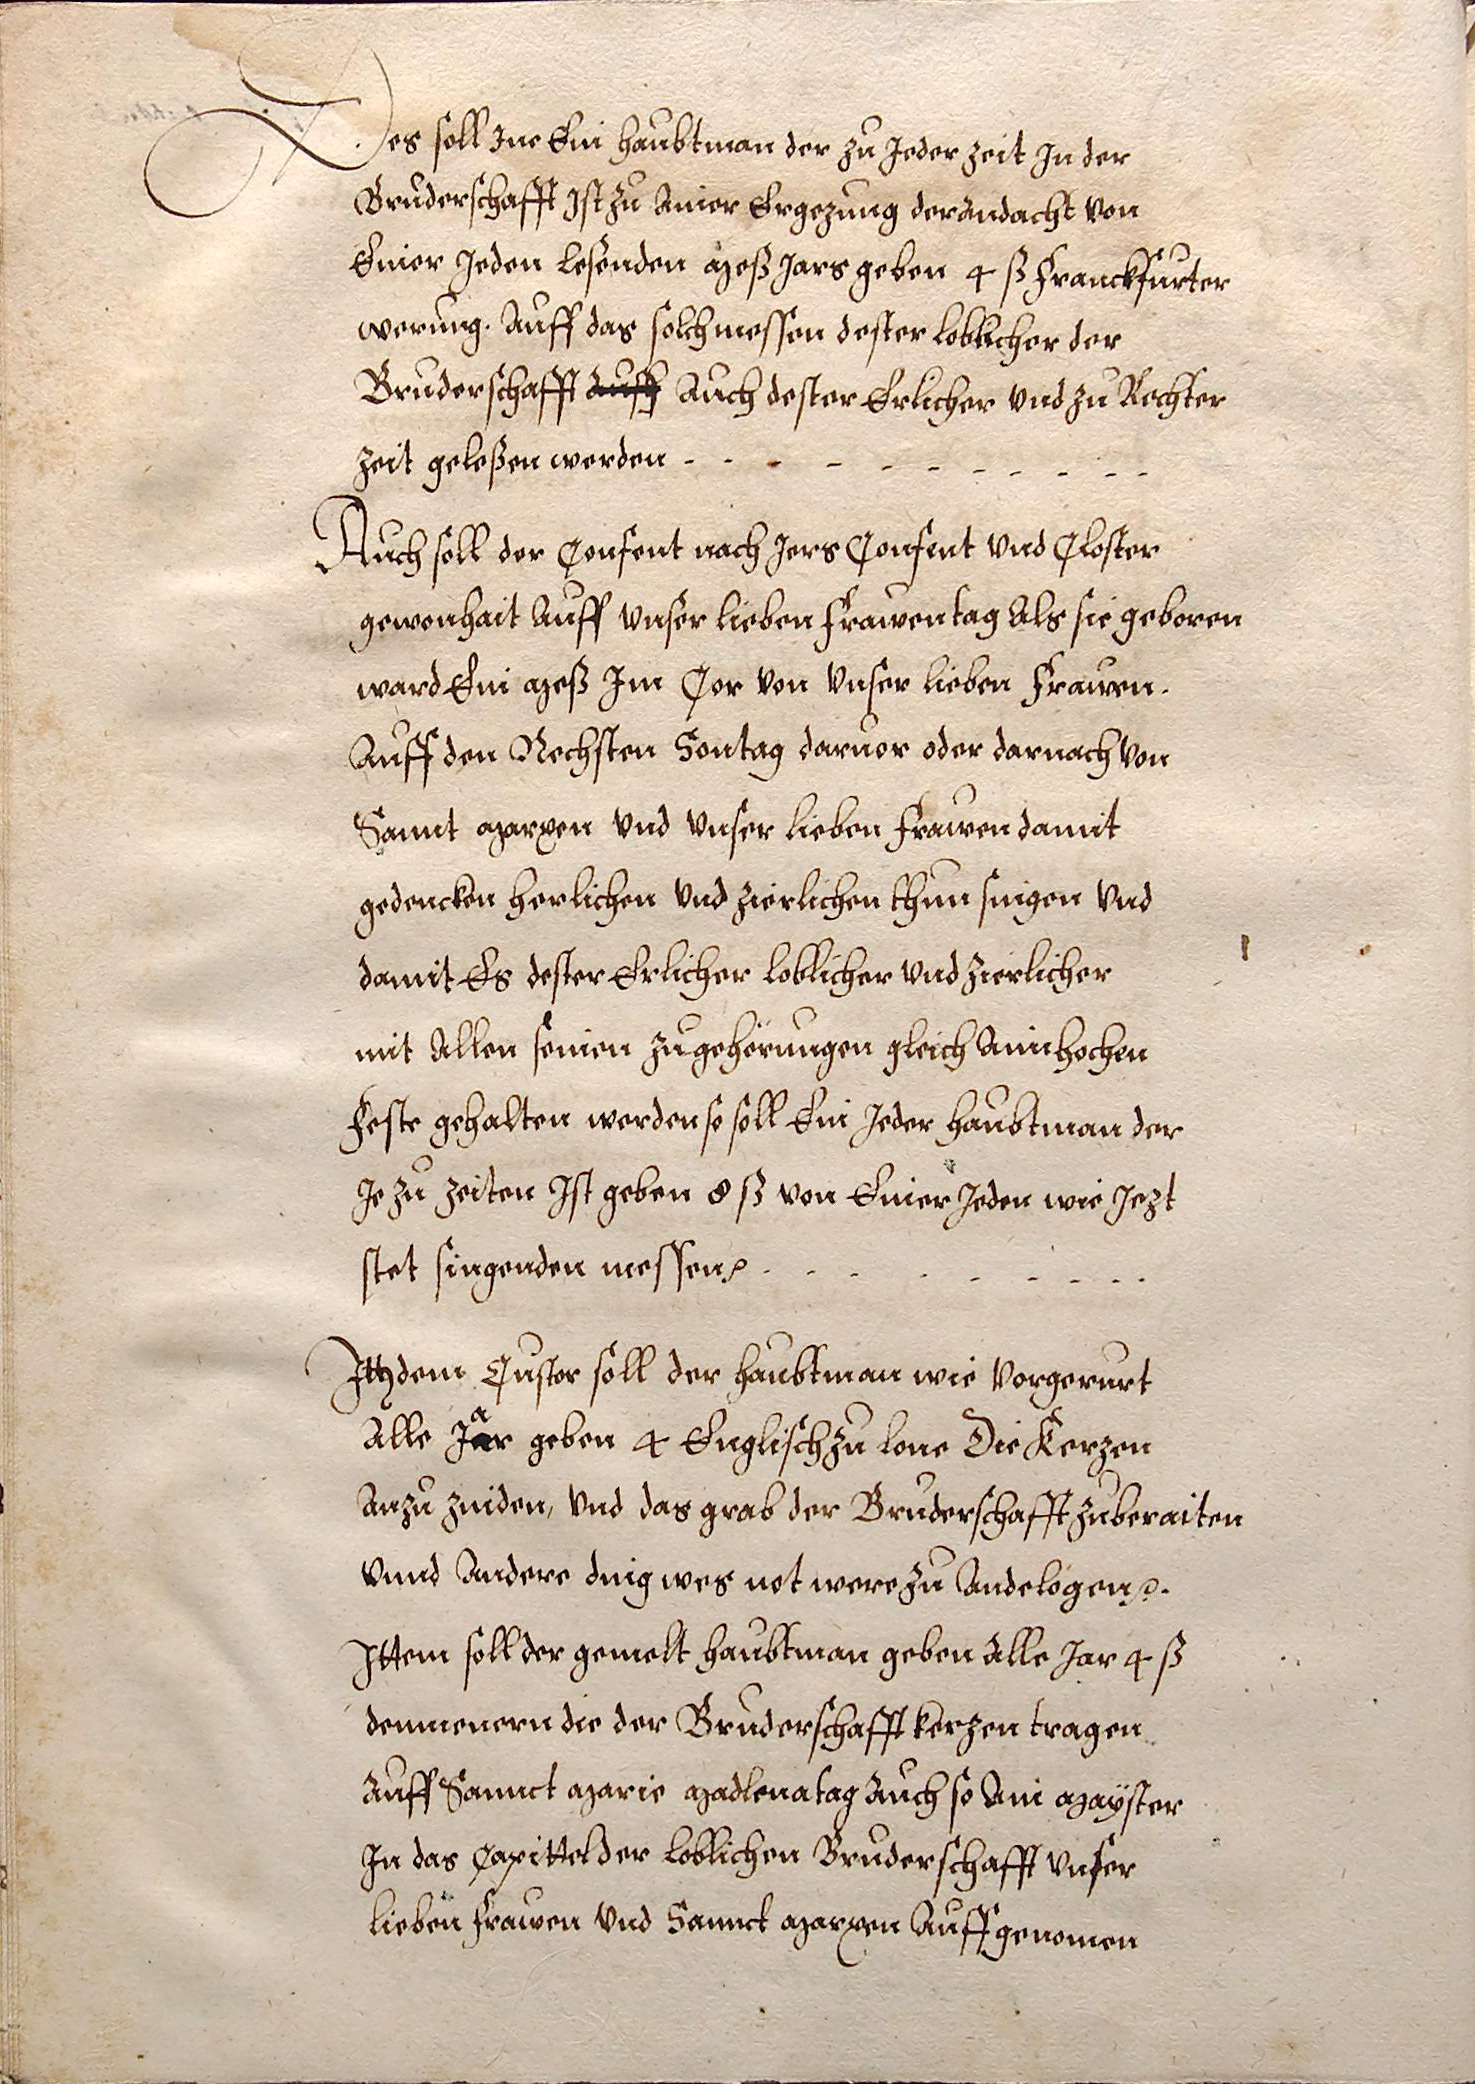 Des soll Ine Ein haubtman der zu Jeder zeit In der
Bruderschafft Ist zu Ainer Ergezung der Andacht von
Einer Jeden lesenden Meß Jars geben 4 ß Franckfurter
werung. Auff das solch messen dester loblicher der
Bruderschafft Auch Auch dester Erlicher vnd zu Rechter
zeit geleßen werden - - - - - - - - - - -
Auch soll der Confent nach Jers Confent vnd Closter
gewonhait Auff vnser lieben frawen tag Als sie geboren
ward Ein Meß Im Cor von vnser lieben Frawen.
Auff den Nechsten Sontag daruor oder darnach von
Sannt Marxen vnd vnser lieben frawen damit
gedencken herlichen vnd zierlichen thun singen vnd
damit Es dester Erlicher loblicher vnd zierlicher
mit Allen seinen zugehörungen gleich Aim hochen
Feste gehalten werden so soll Ein Jeder haubtman der
Je zu zeiten Ist geben 8 ß von Einer Jeden wie Jezt
stet singenden messen - - - - - - - -
Itt dem Custor soll der haubtman wie vorgerurt
Alle Jar geben 4 Englisch zu lone Die Kerzen
Anzu zinden, vnd das grab der Bruderschafft zuberaiten
vnnd Andere ding wes not were zu Andelogen.
Ittem soll der gemelt haubtman geben Alle Jar 4 ß
den menern die der Bruderschafft kerzen tragen
Auff Sannct Marie Madlena tag Auch so Ain Mayster
In das Capittel der loblichen Bruderschafft vnser
lieben frawen vnd Sannct Marxen Auff genomen